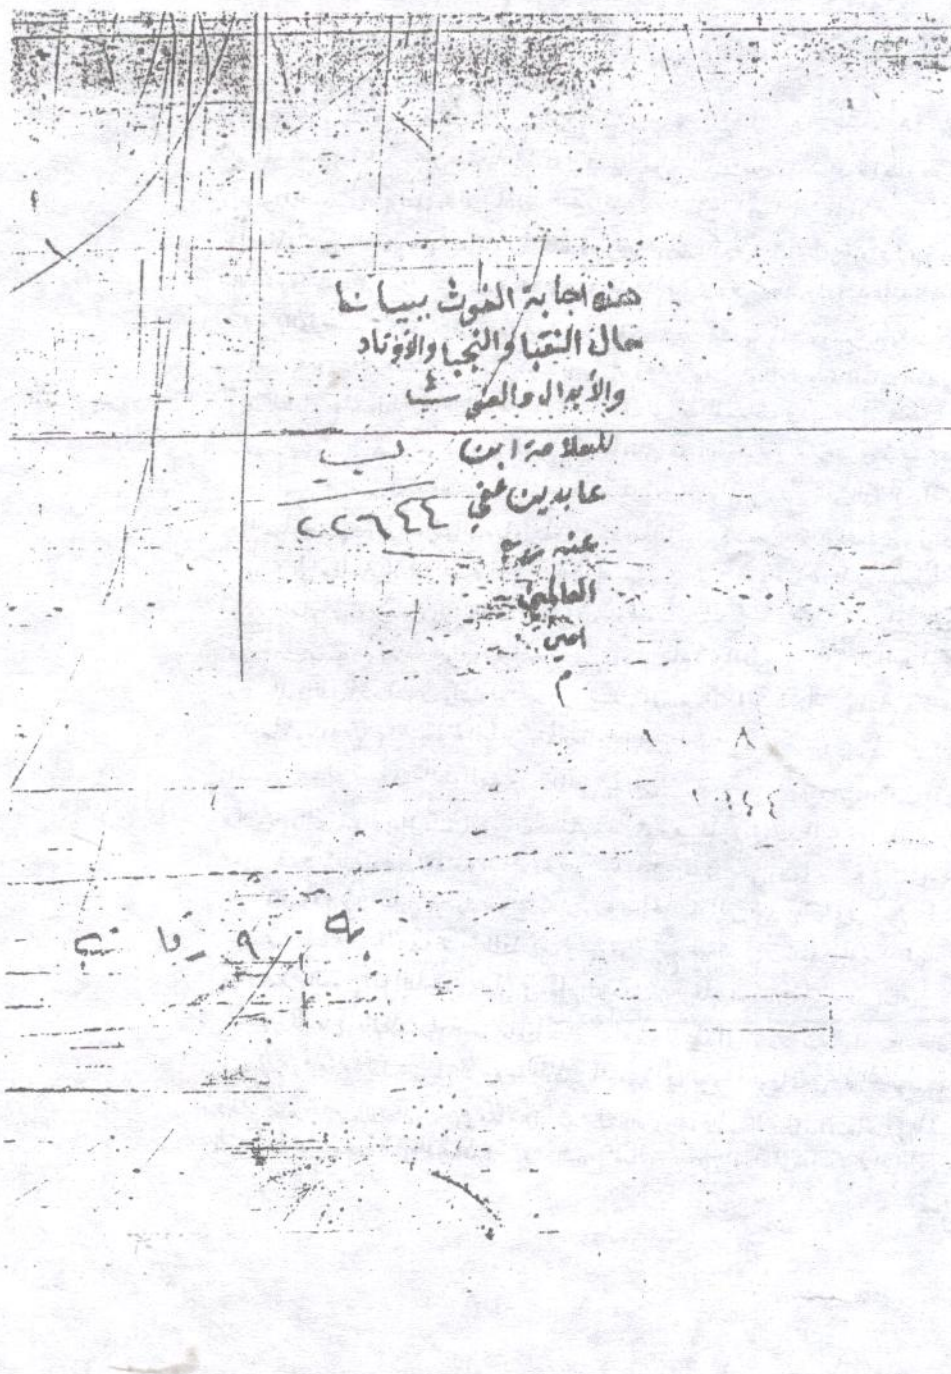 هذه اجابة الغوث ببيان
حال النقبا والنجبا والأوتاد
والأبدال والغوث
للعلامة ابن
عابدين عفي
عنه رب
العالمين
امين
م
ب
٢٢٦٤٤
٩